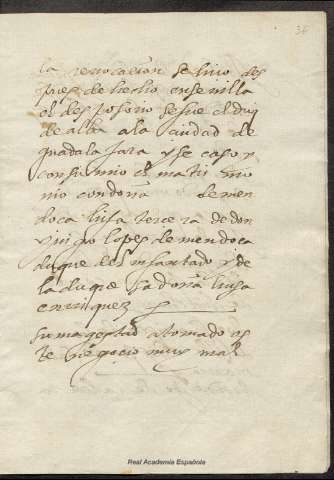 36
la revocacion se hiço des
pues de hecho en sevilla
el desposorio se fue el duq
de alba a la ciudad de
guadalajara y se caso y
consumio el matrimo
nio con doña de men
doça hija tercera de don
yñigo lopes de mendoça
duque del infantado y de
la duquesa doña luysa
enrriquez
su magestad a tomado es
te negocio muy mal
Real Academia Española